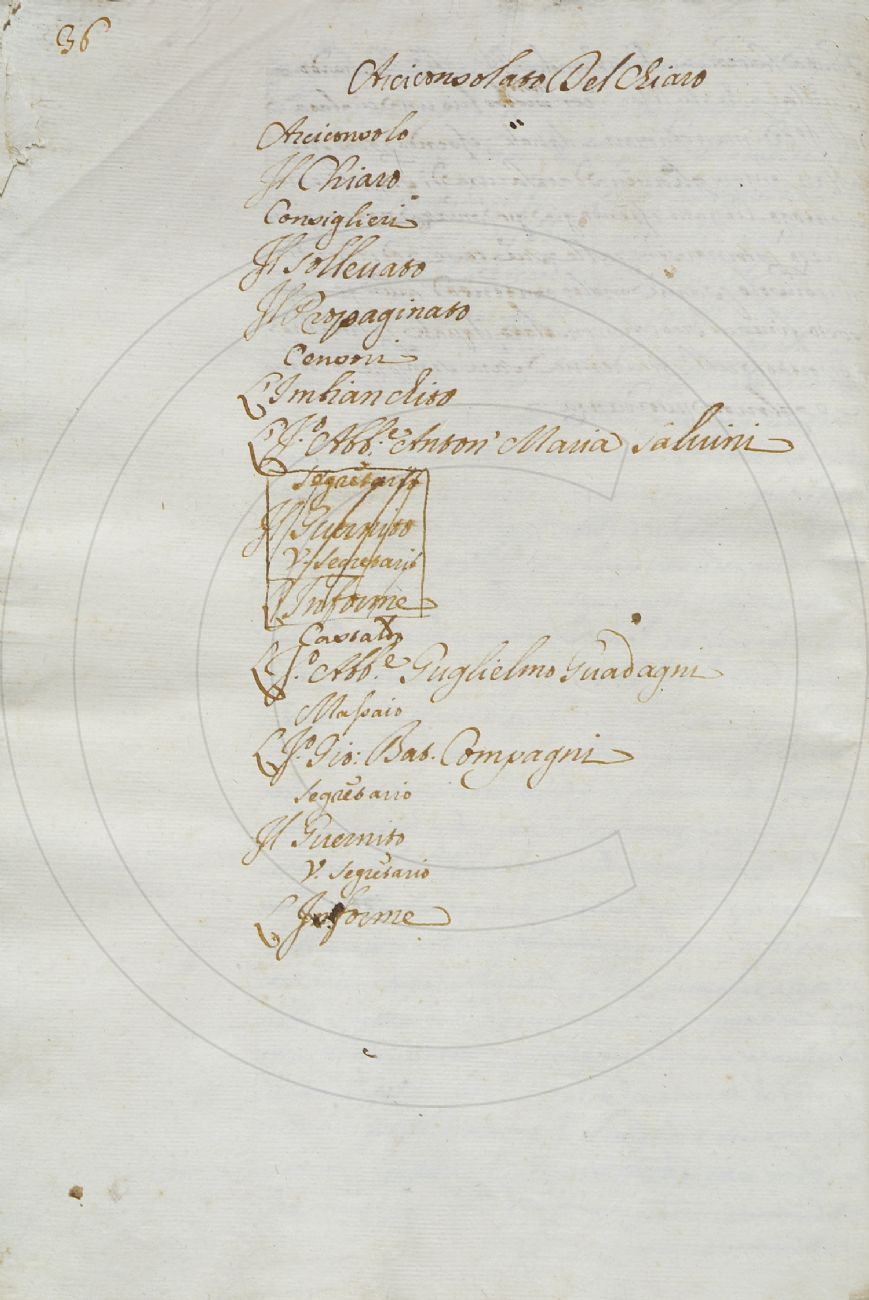 36
Arciconsolato Del Chiaro
Arciconsolo
Il Chiaro
Consiglieri
Il sollevato
Il Propaginato
Censori
L'Imbianchito
L'I.º Abb.e Anton' Maria Salvini
Segretario
Il Guernito
V. Segretario
L'Informe
L'I.º Abb.e Guglielmo Guadagni
Massaio
L'I.º Gio: Bat. Compagni
Segretario
Il Guernito
V. Segretario
L'Informe